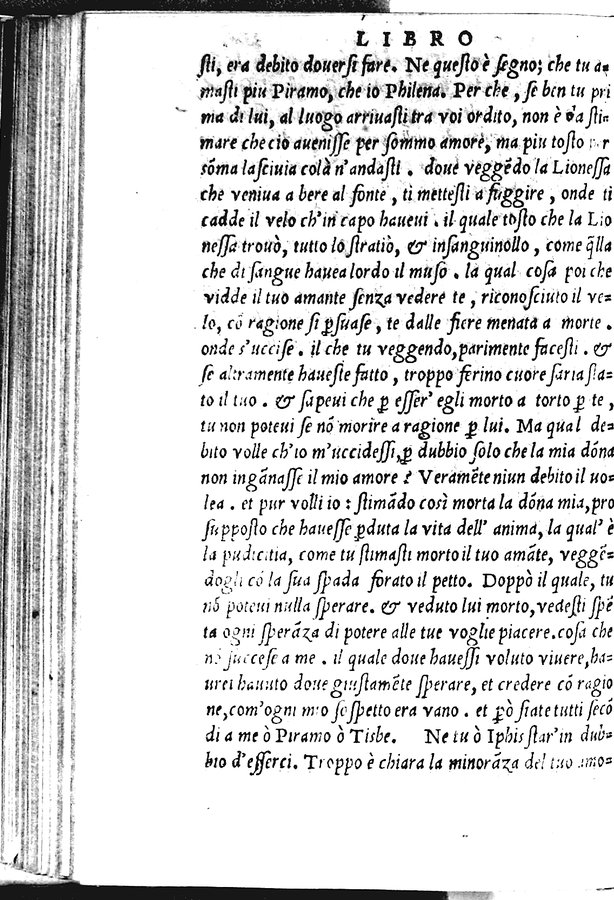 LIBRO
ſti, era debito douerſi fare. Ne queſto è ſegno; che tu a=
maſti piu Piramo, che io Philena. Per che, ſe ben tu pri
ma di lui, al luogo arriuaſti tra voi ordito, non è da ſti=
mare che cio aueniſſe per ſommo amore, ma piu toſto per
sõma laſciuia colà n'andaſti. doue veggẽdo la Lioneſſa
che veniua a bere al fonte, ti metteſti a fuggire, onde ti
cadde il velo ch'in capo haueui. il quale toſto che la Lio
neſſa trouò, tutto lo ſtratiò, & inſanguinollo, come q̃lla
che di ſangue hauea lordo il muſo. la qual coſa poi che
vidde il tuo amante ſenza vedere te, riconoſciuto il ve=
lo, cõ ragione ſi ꝑſuaſe, te dalle fiere menata a morte.
onde s'ucciſe. il che tu veggendo, parimente faceſti. &
ſe altramente haueſte fatto, troppo ferino cuore ſaria ſta=
to il tuo. & ſapeui che ꝑ eſſer' egli morto a torto ꝑ te,
tu non poteui ſe nõ morire a ragione ꝑ lui. Ma qual de=
bito volle ch'io m'uccideſſi, ꝑ dubbio ſolo che la mia dõna
non ingãnaſſe il mio amore? Veramẽte niun debito il uo=
lea. et pur volli io: ſtimãdo così morta la dõna mia, pro
ſuppoſto che haueſſe ꝑduta la vita dell' anima, la qual' è
la pudicitia, come tu ſtimaſti morto il tuo amãte, veggẽ=
dogli cõ la ſua ſpada forato il petto. Doppò il quale, tu
nõ poteui nulla ſperare. & veduto lui morto, vedeſti ſpẽ
ta ogni ſperãza di potere alle tue voglie piacere. coſa che
nõ ſucceſe a me. il quale doue haueſſi voluto viuere, ha=
urei hauuto doue giuſtamẽte ſperare, et credere cõ ragio
ne, com'ogni mio ſoſpetto era vano. et ꝑò ſiate tutti ſecõ
di a me ò Piramo ò Tisbe. Ne tu ò Iphis ſtar'in dub=
bio d'eſſerci. Troppo è chiara la minorãza del tuo amo=